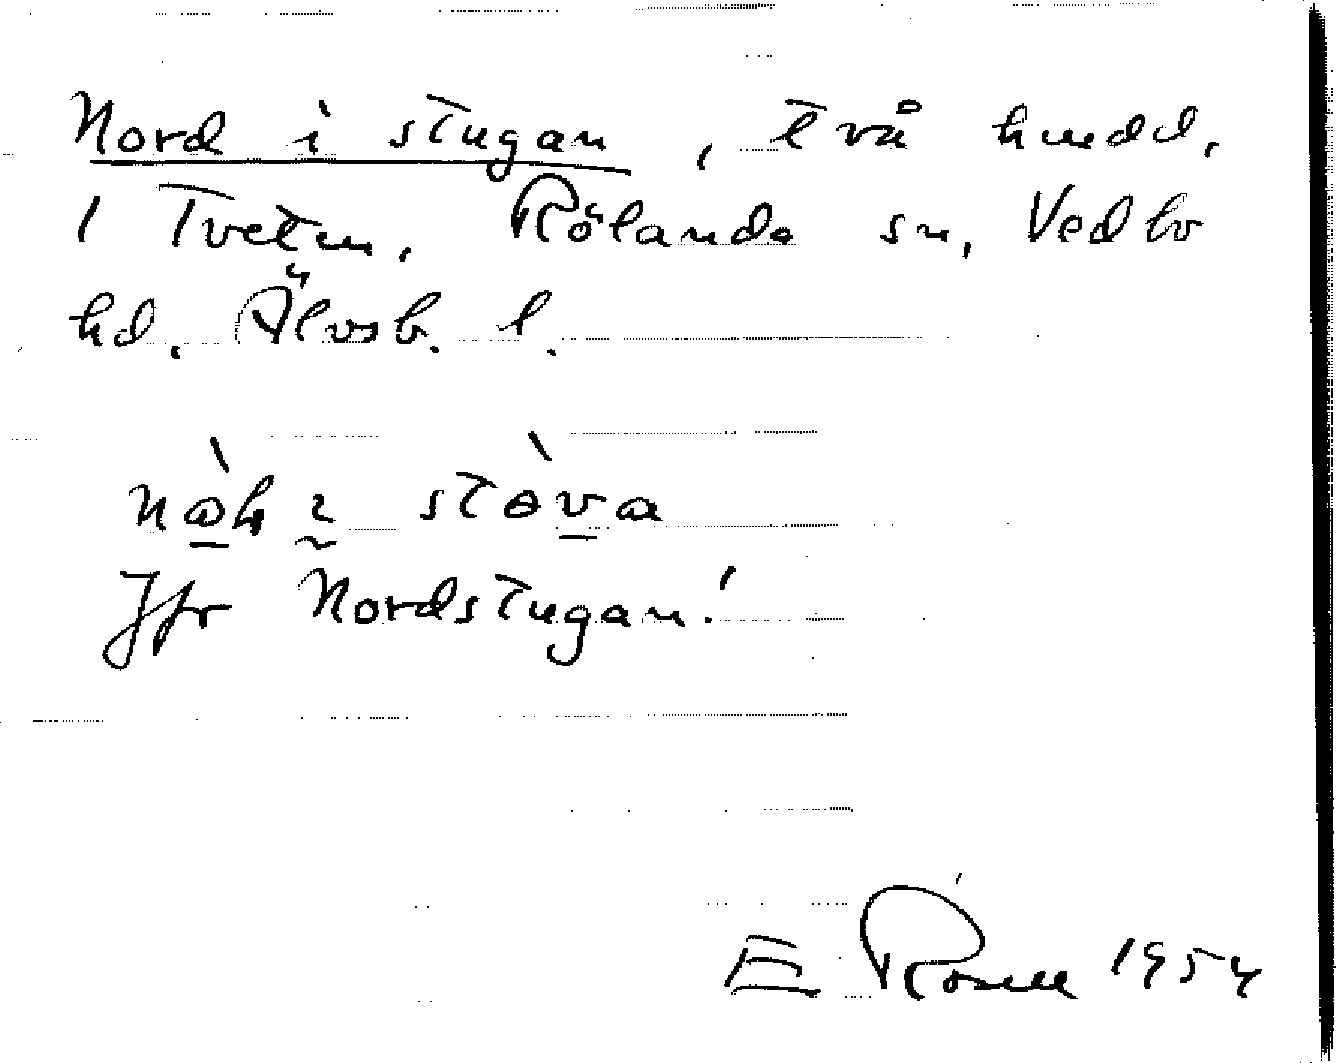 Nord i stugan, två hmdel.
i Tveten, Rölanda sn, Vedbo
hd. Älvsb. l.
stöva
Jfr Nordstugan!
E Rosell 1954